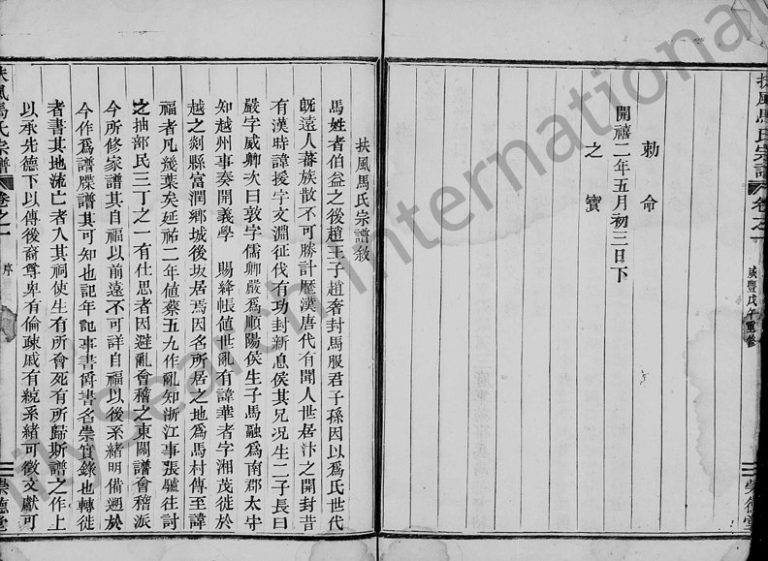 扶風馬氏宗譜
卷之一
咸豐戊午重修
崇德堂
勅命
開禧二年五月初三日下
之寶
扶風馬氏宗譜敘
馬姓者伯益之後趙王子趙奢封馬服君子孫因以爲氏世代
旣遠人蕃族散不可勝計歷漢唐代有聞人世居汴之開封昔
有漢時諱援字文淵征伐有功封新息侯其兄况生二子長曰
嚴字威卿次曰敦字儒卿嚴爲順陽侯生子馬融爲南郡太守
知越州事奏開義學 賜絳帳値世亂有諱華者字湘茂徙於
越之剡縣富潤鄉城後坂居焉因名所居之地爲馬村傳至諱
福者凡幾葉矣延祐二年値蔡五九作亂知浙江事張驢往討
之抽部民三丁之一有仕思者因避亂會稽之東關譜會稽派
今所修家譜其自福以前遠不可詳自福以後系緒明備遡於
今作爲譜牒譜其可知也記年記事書爵書名崇實錄也轉徙
者書其地流亡者入其祠使生有所會死有所歸斯譜之作上
以承先德下以傳後裔尊卑有倫疎戚有統系緒可徵文獻可
扶風馬氏宗譜
卷之一
序
崇德堂
international